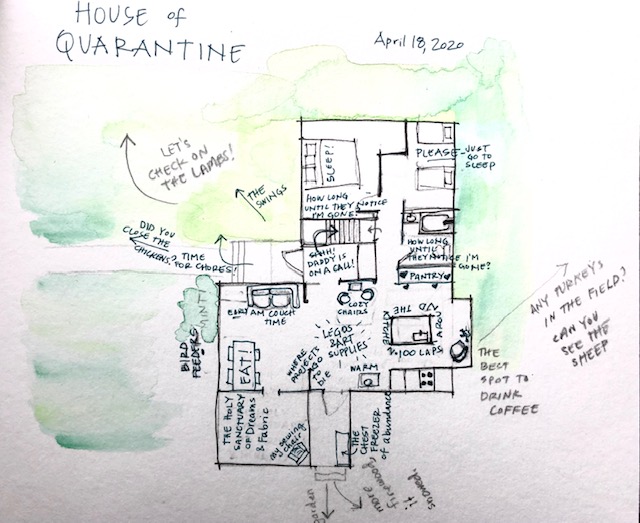 HOUSE of
QUARANTINE
April 18, 2020
LET'S
CHECK ON
THE LAMBS!
THE SWINGS
DID YOU
CLOSE THE
CHICKENS?
TIME
FOR CHORES!
SLEEP!
PLEASE JUST
GO TO
SLEEP
HOW LONG
UNTIL THEY NOTICE
I'M GONE?
SHHH!
DADDY IS
ON A CALL!
HOW LONG
UNTIL
THEY NOTICE I'M
GONE?
PANTRY
EARLY AM COUCH
TIME
COZY
CHAIRS
MINT!
BIRD
FEEDERS
EAT!
LEGOS
& ART
SUPPLIES
WHERE
PROJECTS
GO TO
DIE
KITCHEN
THE
AROUND
100 LAPS
WARM
ANY TURKEYS
IN THE FIELD?
CAN YOU
SEE THE
SHEEP
THE
BEST
SPOT TO
DRINK
COFFEE
THE HOLY
SANCTUARY
OF Dreams
& Fabric
my sewing
chair
THE
CHEST
FREEZER
of abundance
garden
more
firewood,
it
snowed.